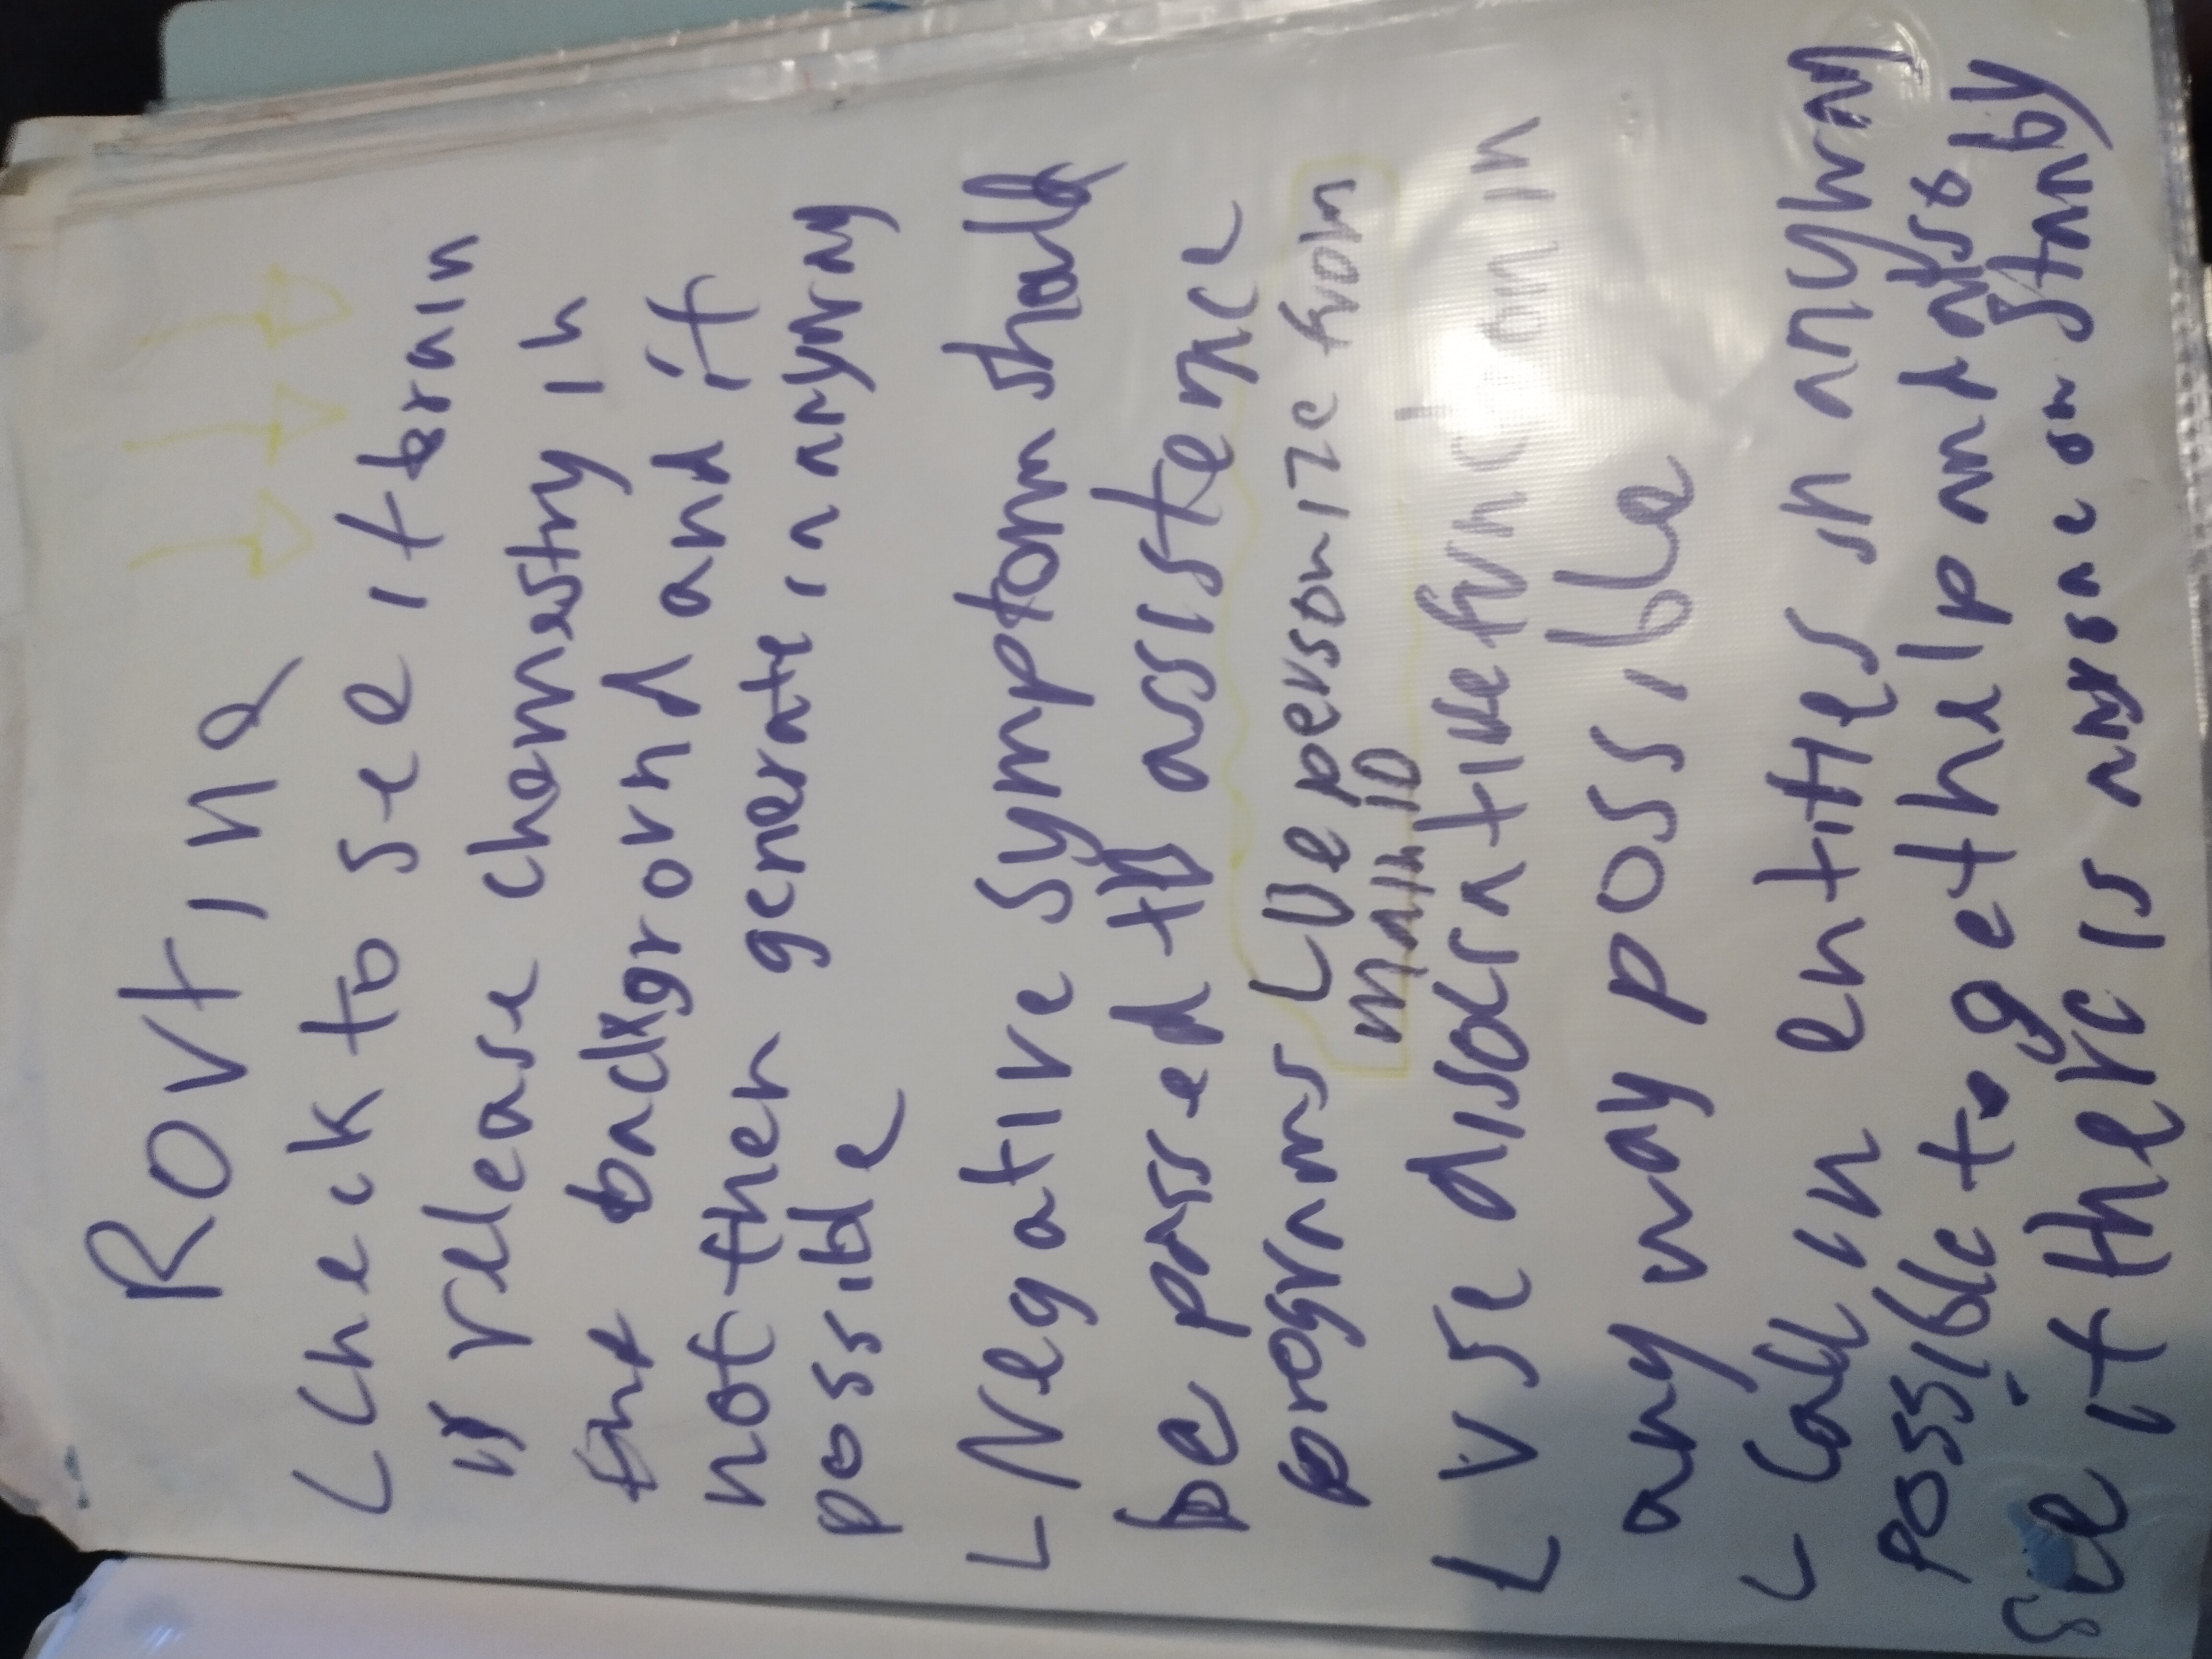 ROUTINE
L check to see if brain
is release chemestry in
the background and if
not then generate in anyway
possible
L Negative symptom shall
be passed to assistence
programs L Depersonize from
main ID
L use disocratide function in
any way possible
L Call in entities in anyway
possible to get help and also
see if there is nurse on standby